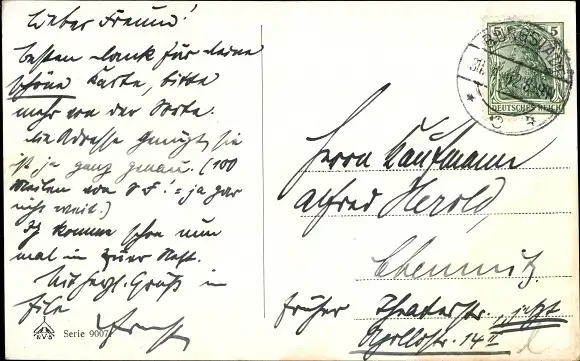 Lieber Freund!
besten Dank für deine
schöne Karte, bitte
mehr von der Sorte.
die Adresse genügt, sie
ist ja ganz genau. (100
Meilen von S.F. = ja gar
nicht weit.)
Ich komme schon nun
mal in Eurer Nest.
Mit herzl. Gruß in
Eile
Serie 9007
DEUTSCHES REICH
5
Herrn Kaufmann
Alfred Herold,
Chemnitz
früher Theaterstr., jetzt
Apollostr. 14 II